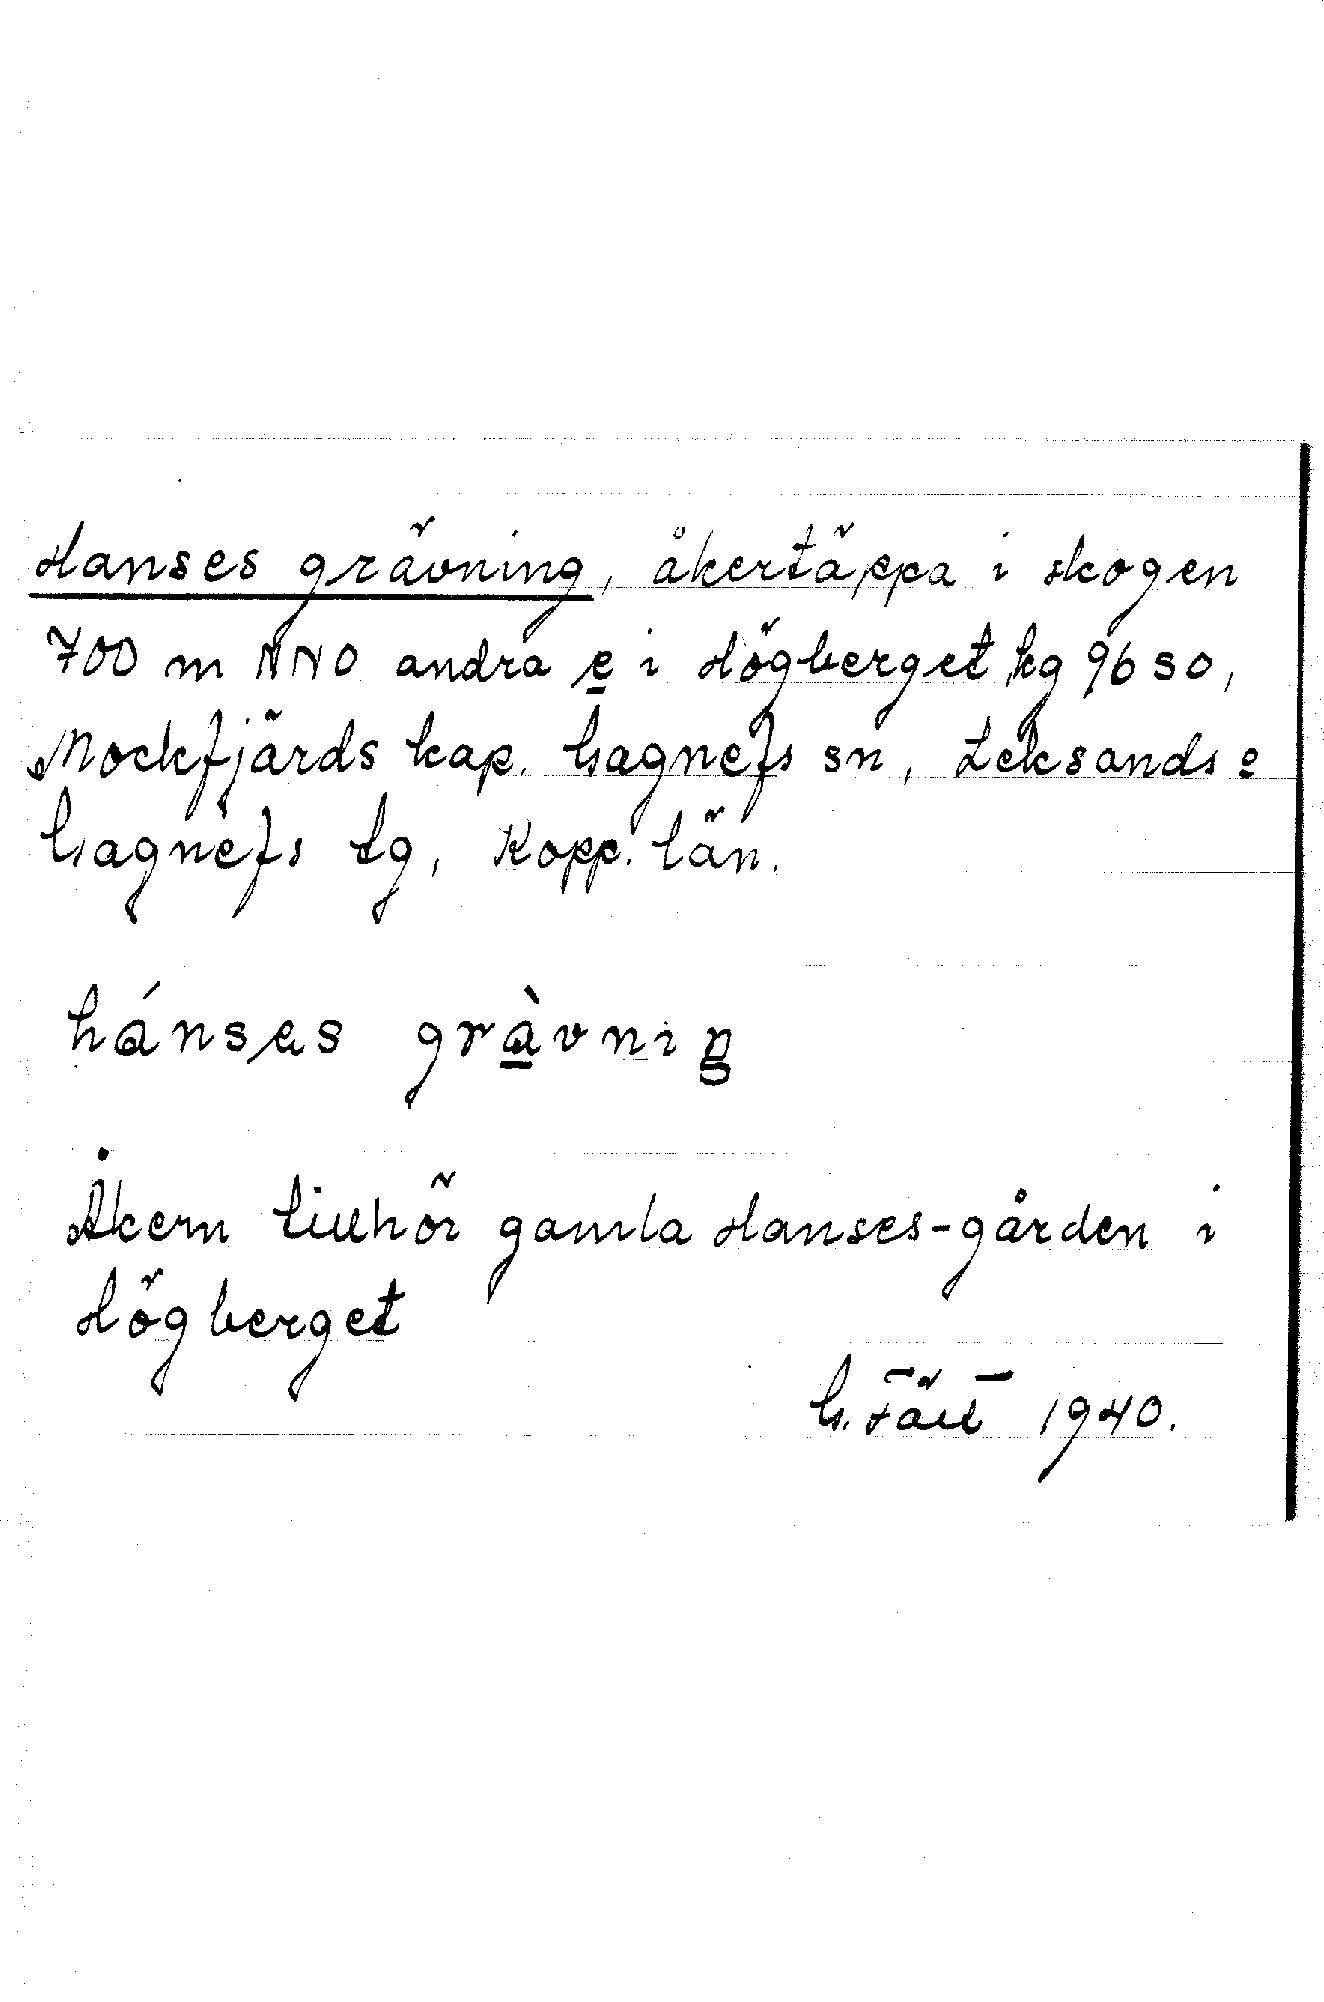 Hanses grävning, åkertäppa i skogen
700 m NNO andra e i Högberget kg 96 SO,
Mockfjärds kap. Gagnefs sn, Leksands o
Gagnefs tg, Kopp. län.
hánsas gràvniŋ
Åkern tillhör gamla Hanses-gården i
Högberget
G. Fält 1940.